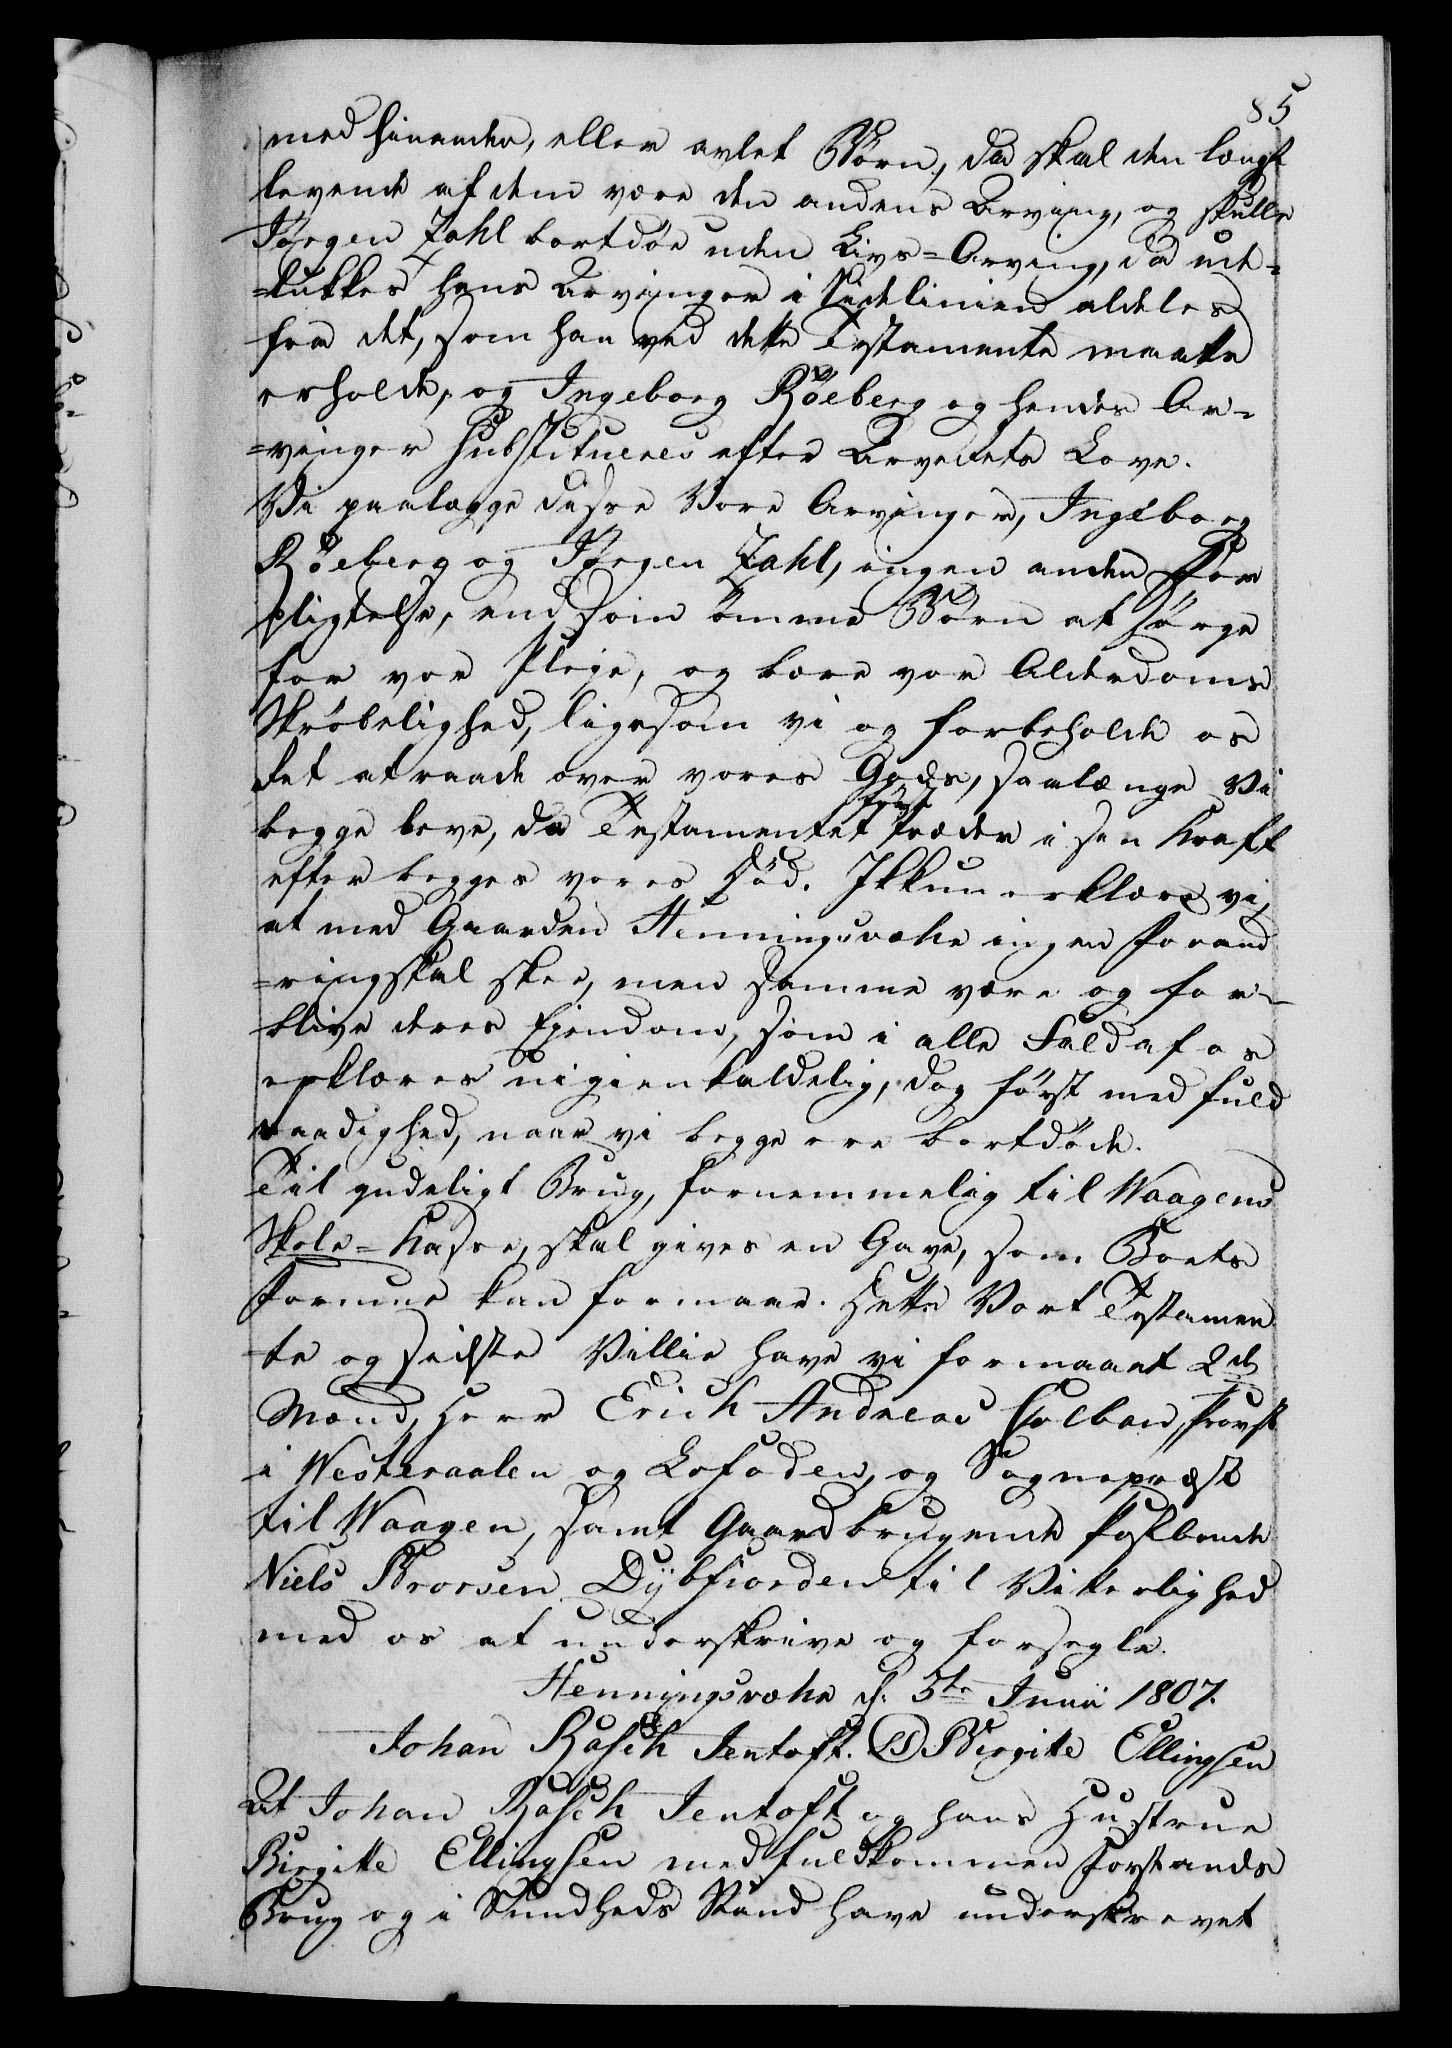 85
med hinanden, eller avlet Børn, da skal den længst
levende af dem være den andens Arving, og skulle
Jørgen Zahl bortdøe uden Livs=Arving, da ude=
=lukkes hans Arvinger i Sidelinien aldeles
fra det, som han ved dette Testamente maatte
erholde, og Ingeborg Röeberg og hendes Ar=
=vinger substitueres efter Arvetets Love.
Vi paalægge disse Vore Arvinger, Ingeborg
Röeberg og Jørgen Zahl, ingen anden For
pligtelse, end som ömme Börn at sörge
for vor Pleje, og bære vor Alderdoms
Skröbelighed, ligesom vi og forbeholde os
det at raade over vores Gods, saalænge Vi
begge leve, da Testamentet först træder i sin Kraft
efter begges vores Död. Ikkun erklære vi,
at med Gaarden Henningsvæhr ingen Forand
=ring skal skee, men samme være og for=
blive deres Ejendom, som i alle Fald af os
erklæres uigienkaldelig, dog först med fuld
raadighed, naar vi begge ere bortdöde.
Til gudeligt Brug, fornemmelig til Waagens
Skole=Kasse, skal gives en Gave, som Boets
Formue kan formaae. Dette Vort Testamen
te og sidste Villie have vi formaaet 2de
Mænd, Herr Erich Andreas Colban, Provst
i Westeraalen og Lofoden, og Sognepræst
til Waagen, samt Gaardbrugende Postbonde
Niels Brorsen Dÿbfiorden til Vitterlighed
med os at underskrive og forsegle.
Henningsvæhr d. 5te Junii 1807.
Johan Rasch Jentoft. LS Birgitte Ellingsen
At Johan Rasch Jentoft og hans Hustrue
Birgitte Ellingsen med fuldkommen Forstands
Brug og i Sundheds Stand have underskrevet